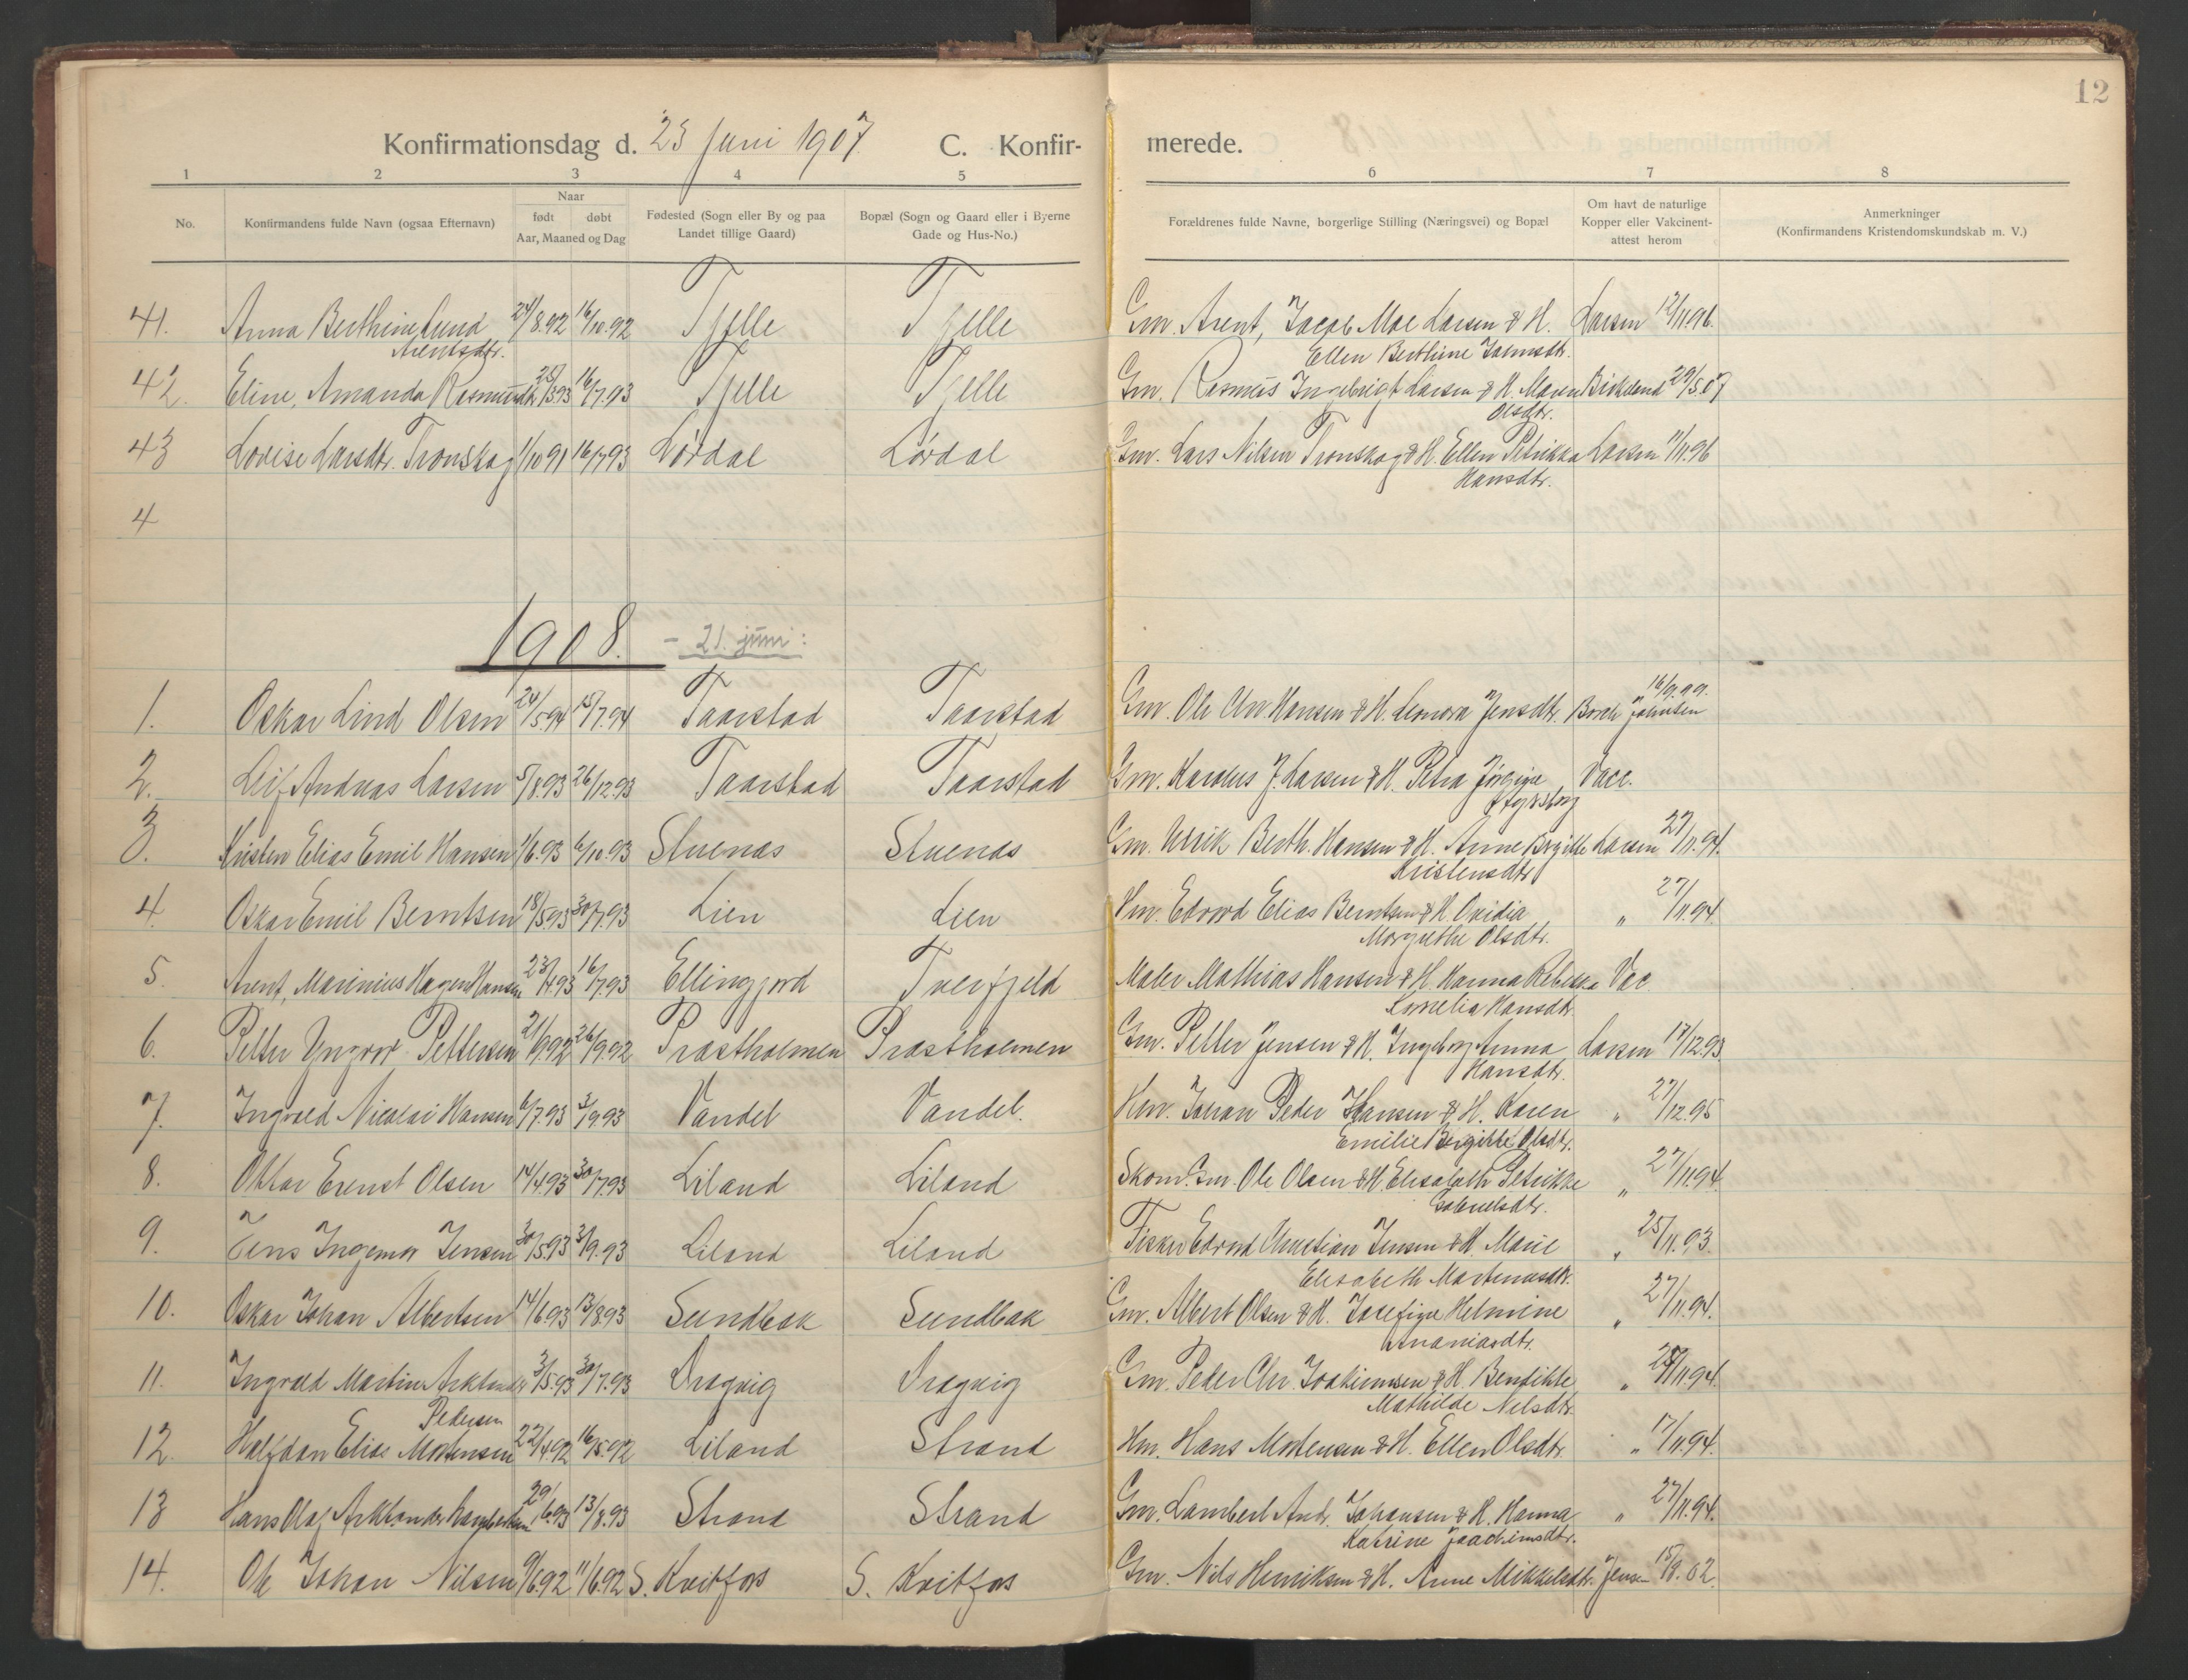 12
Konfirmationsdag d. 23 Juni 1907. C. Konfir- merede.
1 2 3 4 5 6 7 8
No. Konfirmandens fulde Navn (ogsaa Efternavn) Naar født døbt Aar, Maaned og Dag Fødested (Sogn eller By og paa Landet tillige Gaard) Bopæl (Sogn og Gaard eller i Byerne Gade og Hus-No.) Forældrenes fulde Navne, borgerlige Stilling (Næringsvei) og Bopæl Om havt de naturlige Kopper eller Vakcinent- attest herom Anmerkninger (Konfirmandens Kristendomskundskab m. V.)
41. Anna Berthine Lund 24/8.92 16/10.92 Tjelle Tjelle Gm. Arent, Jacob Moe Larsen & H. Larsen 12/11.96.
Arentsdtr. Ellen Berthine Joh
42. Eline, Amanda Rasmusdtr. 25/3.93 16/7.93 Tjelle Tjelle Gm. Rasmus Ingebrigt Larsen & H. Maren 29/5.07
Olsdtr.
43 Lovise Larsdtr. Tronskog 1/10 91 16/7 93 Lørdal Lørdal Gm. Lars Nilsen Tronskog & H. Ellen Petrikka Larsen 11/11.96
Hansdtr.
4
1908. - 21. juni:
16/9.99.
1. Oskar Lind Olsen 24/5.94 15/7.94 Taarstad Taarstad Gm. Ole Chr. Hansen & H. Leonora Jensdtr. Johnsen
2. Leif Andreas Larsen 5/8.93 26/12.93 Taarstad Taarstad Gm. Karolus J. Larsen & H. Petra Jørgine Vacc.
3. Kristen Elias Emil Hansen 1/6.93 6/10.93 Stuenes Stuenes Gm. Ulrik Berth. Hansen & H. Anne Birgitte Larsen 27/11.94.
Kristensdtr.
4. Oskar Emil Berntsen 18/5.93 30/7.93 Lien Lien Hm. Edvard Elias Berntsen & H. Ovidia " 27/11.94.
Margrethe Olsdtr.
5. Arent, Marinius Hagen Hansen 23/4.93 16/7.93 Ellingjord Tverfjeld Maler Mathias Hansen & H. Hanna Rebekka Vac.
Kornelia Hansdtr.
6. Petter Yngvar Pettersen 21/7.92 26/9.92 Præstholmen Præstholmen Gm. Petter Jensen & H. Ingeborg Anna Larsen 17/12.93.
Hansdtr.
7. Ingvald Nicolai Hansen 6/7.93 3/9.93 Vandel Vandel. Hm. Johan Peder Hansen & H. Karen " 27/12.95
Emilie Birgitte Olsdtr.
8. Ottar Ernst Olsen 14/4.93 30/7.93 Liland Liland Skom. Gm. Ole Olsen & H. Elisabeth Petrikke " 27/11.94.
Gabrielsdtr.
9. Jens Ingemar Jensen 30/5.93 3/9.93 Liland Liland Fisker Edvard Christian Jensen & H. Marie " 25/11.93.
Elisabeth Martinusdtr.
10. Oskar Johan Albertsen 14/6.93 13/8.93 Sundbak Sundbak Gm. Albert Olsen & H. Josefine Helmine " 27/11.94.
Ananiasdtr.
11. Ingvald Martin Arktander 3/5.93 30/7.93 Dragvig Dragvig Gm. Peder Chr. Joakimsen & H. Bendikte " 27/11.94.
Pedersen Mathilde Nilsdtr.
12. Halfdan Elias Mortensen 22/4.92 16/5.92 Liland Strand Hm. Hans Mortensen & H. Ellen Olsdtr. " 17/11.94.
13 Hans Olaf Arktander Lambertsen 29/6.93 13/8.93 Strand Strand Gm. Lambert Andr. Johansen & H. Hanna " 27/11.94.
Katrine Joachimsdtr.
14. Ole Johan Nilsen 9/6.92 11/6.92 S. Kvitfos S. Kvitfos Gm. Nils Henriksen & H. Anne Mikkelsdtr. Jensen 15/9.02.